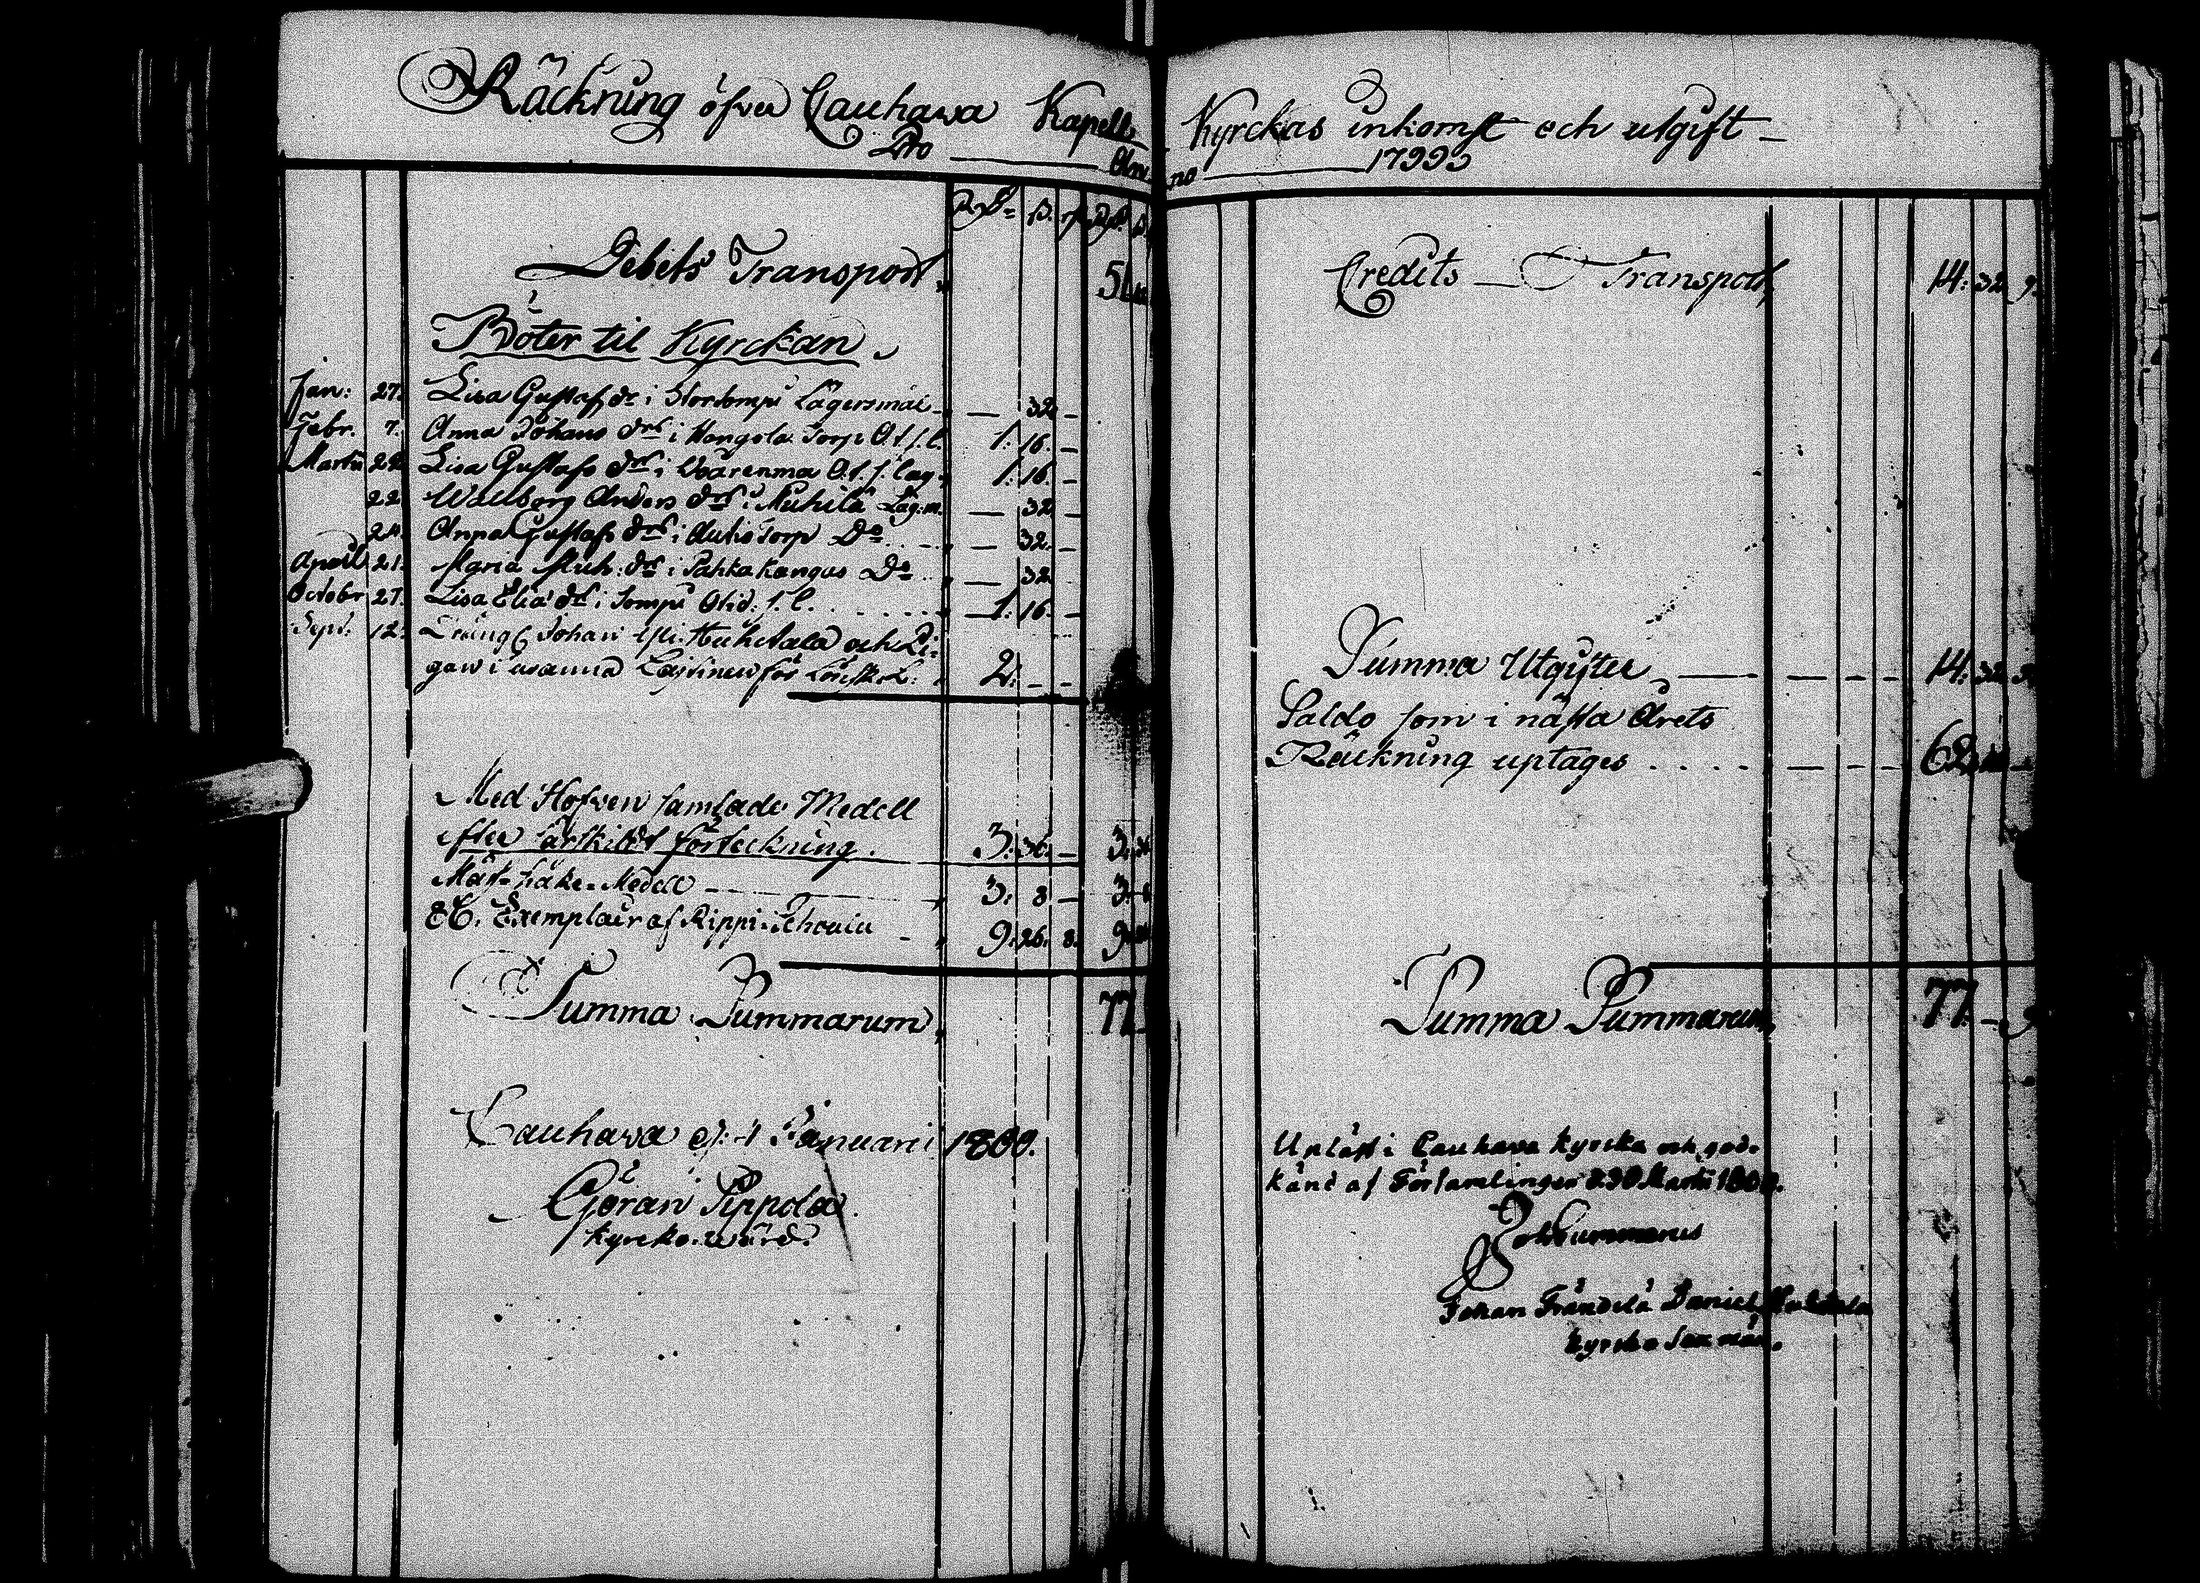 Räckning öfver Cauhawa Kapells Kyrckas inkomst och utgift
Pro Anno 1799
Debets Transport 51
Böter til Kyrckan
Jan: 27. Lisa Gustafs dr i Lägersmål — 32 —
Febr. 7. Anna Johans drs i Hangola Torp O.t.f.l. 1: 16. —
Martii 22 Lisa Gustafs drs i O.t.f. läg 1: 16. —
22 Wallborg Anders drs i Läg:m. — 32 —
24. Anna Gustafs drs i Torp Do — 32. —
April 21. Maria Mich: drs i Pahkakangas Do — 32
Octobr 27. Lisa Elia dr i Sompi f.l. 1: 16. —
Sept: 12. Dräng Johan och Pi=
gan för Lönsk.L: 2. — —
Med Hofven samlade Medell
efter särskildt förteckning. 3: 36. — 3: 36
Mäss-hake-Medell 3: 8 — 3: 8
86. Exemplair af Rippi-Schoulu 9: 26. 8. 9: 26
Summa Summarum 77
Cauhawa d: 1 Januarii 1800.
Göran Pippola
kyrcko-wärd.
Credits Transport 14: 32 9.
Summa Utgifter 14: 32 9
Saldo som i nästa Årets
Räckning uptages 62
Summa Summarum 77. — 9
Upläst i Cauhawa kyrcka och god-
känt af Församlingen d 30 Martii 1800.
Johan Frändilä Daniel
kyrcko sex män.